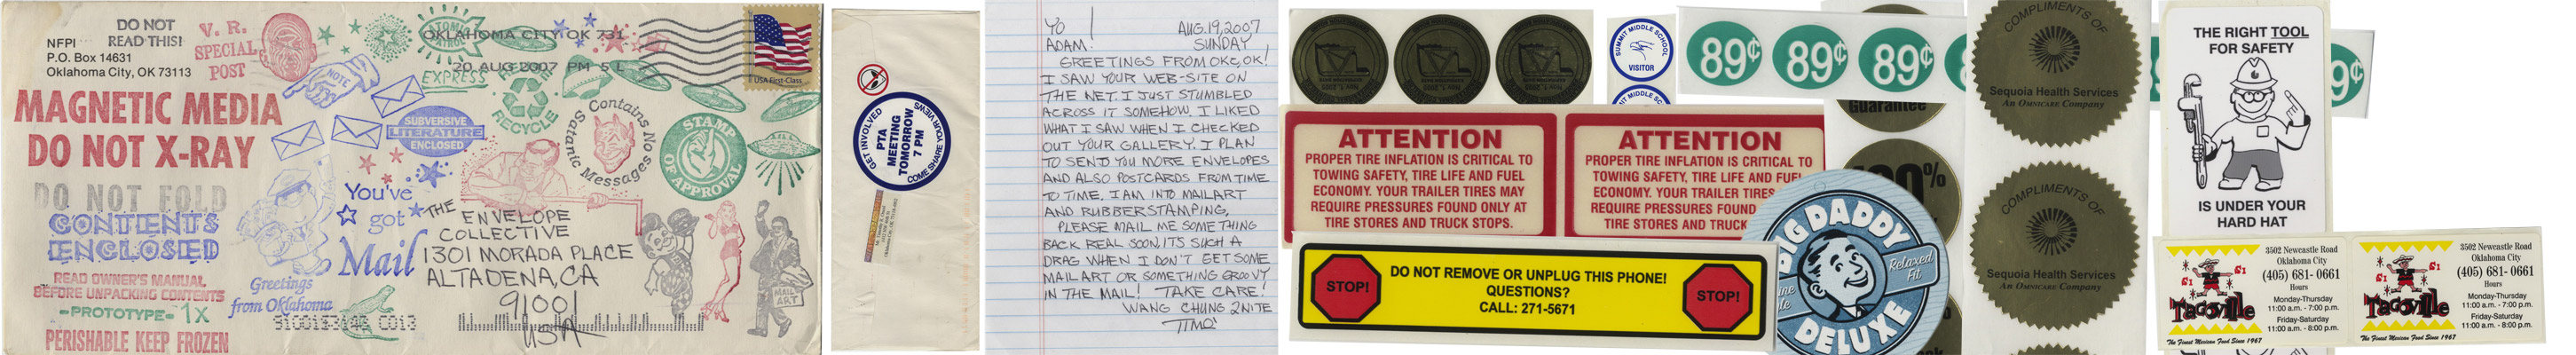 DO NOT
READ THIS!
NFPI
P.O. Box 14631
Oklahoma City, OK 73113
V. R.
SPECIAL
POST
ATOMIC
OKLAHOMA CITY OK 731
20 AUG 2007 PM 5 L
USA First-Class
NOTE
EXPRESS
RECYCLE
MAGNETIC MEDIA
DO NOT X-RAY
SUBVERSIVE
LITERATURE
ENCLOSED
Contains No
Satanic
Messages
STAMP
OF APPROVAL
DO NOT FOLD
CONTENTS
ENCLOSED
You've
got
Mail
THE ENVELOPE
COLLECTIVE
1301 MORADA PLACE
ALTADENA, CA
91001
USA
READ OWNER'S MANUAL
BEFORE UNPACKING CONTENTS
-PROTOTYPE- 1X
PERISHABLE KEEP FROZEN
Greetings
from Oklahoma
MAIL
ART
GET INVOLVED
PTA
MEETING
TOMORROW
7 PM
COME SHARE YOUR VIEWS
YO! AUG. 19, 2007
ADAM: SUNDAY
GREETINGS FROM OKC, OK!
I SAW YOUR WEB-SITE ON
THE NET. I JUST STUMBLED
ACROSS IT SOMEHOW. I LIKED
WHAT I SAW WHEN I CHECKED
OUT YOUR GALLERY. I PLAN
TO SEND YOU MORE ENVELOPES
AND ALSO POSTCARDS FROM TIME
TO TIME. I AM INTO MAILART
AND RUBBERSTAMPING.
PLEASE MAIL ME SOMETHING
BACK REAL SOON. ITS SUCH A
DRAG WHEN I DON'T GET SOME
MAILART OR SOMETHING GROOVY
IN THE MAIL! TAKE CARE!
WANG CHUNG 2NITE
TIMO
SUMMIT MIDDLE SCHOOL
VISITOR
MIDDLE SC
89¢
89¢
89¢
9¢
ATTENTION
PROPER TIRE INFLATION IS CRITICAL TO
TOWING SAFETY, TIRE LIFE AND FUEL
ECONOMY. YOUR TRAILER TIRES MAY
REQUIRE PRESSURES FOUND ONLY AT
TIRE STORES AND TRUCK STOPS.
ATTENTION
PROPER TIRE INFLATION IS CRITICAL TO
TOWING SAFETY, TIRE LIFE AND FUEL
ECONOMY. YOUR TRAILER TIRES
REQUIRE PRESSURES FOUND
TIRE STORES AND TRUCK
STOP!
DO NOT REMOVE OR UNPLUG THIS PHONE!
QUESTIONS?
CALL: 271-5671
STOP!
Guarantee
BIG DADDY
Relaxed
Fit
DELUXE
COMPLIMENTS OF
Sequoia Health Services
An OMNICARE Company
COMPLIMENTS OF
Sequoia Health Services
An OMNICARE Company
THE RIGHT TOOL
FOR SAFETY
IS UNDER YOUR
HARD HAT
Tacoville
3502 Newcastle Road
Oklahoma City
(405) 681-0661
Hours
Monday-Thursday
11:00 a.m. - 7:00 p.m.
Friday-Saturday
11:00 a.m. - 8:00 p.m.
The Finest Mexican Food Since 1967
Tacoville
3502 Newcastle Road
Oklahoma City
(405) 681-0661
Hours
Monday-Thursday
11:00 a.m. - 7:00 p.m.
Friday-Saturday
11:00 a.m. - 8:00 p.m.
The Finest Mexican Food Since 1967